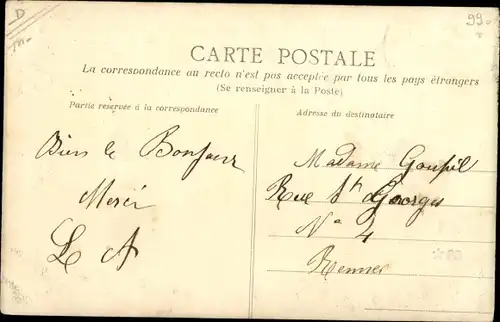 D
99
CARTE POSTALE
La correspondance au recto n'est pas acceptée par tous les pays étrangers
(Se renseigner à la Poste)
Partie réservée à la correspondance
Adresse du destinataire
Bien le Bonjour
Merci
L A
Madame Goupil
Rue St Georges
No 4
Rennes